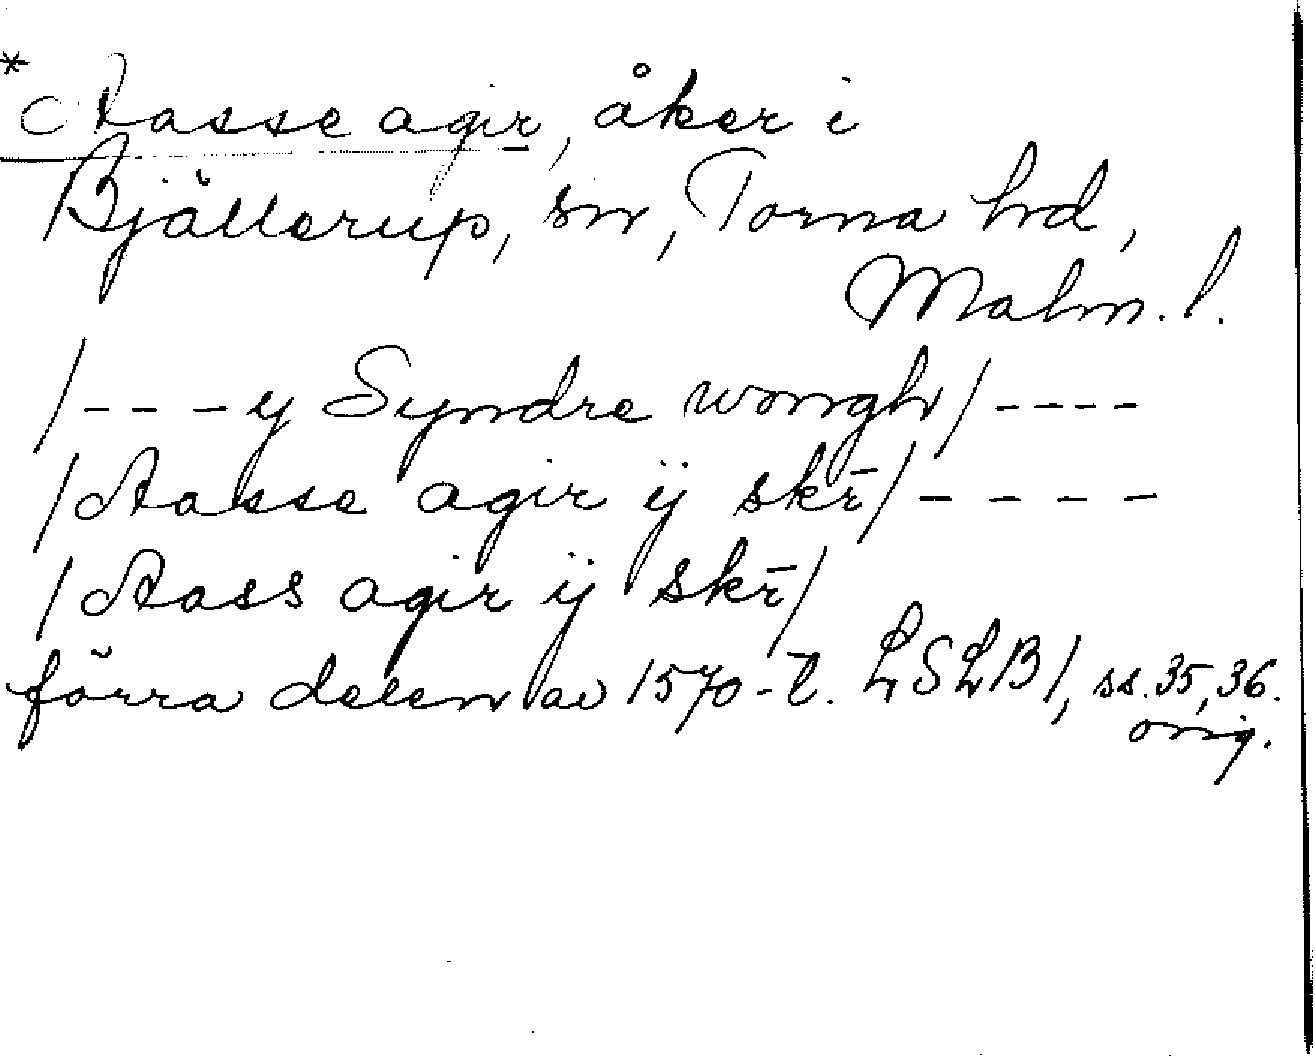 *Aasse agir, åker i
Bjällerup, sn, Torna hd,
Malm. l.
/ - - - y Syndre wongh / - - - -
/ Aasse agir ij skr̄ / - - - -
/ Aass agir ij skr̄ /
förra delen av 1570-t. LSLB 1, ss. 35, 36.
orig.